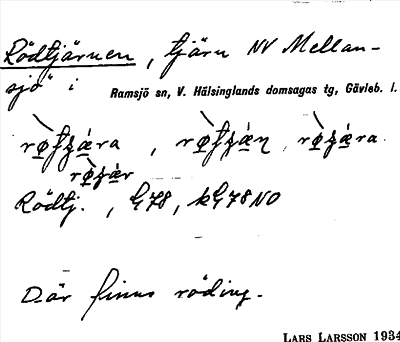 Rödtjärnen, tjärn NV Mellan-
sjö i Ramsjö sn, V. Hälsinglands domsagas tg, Gävleb. l.
Rödtj., G78, kG78NO
Där finns röding.
LARS LARSSON 1934